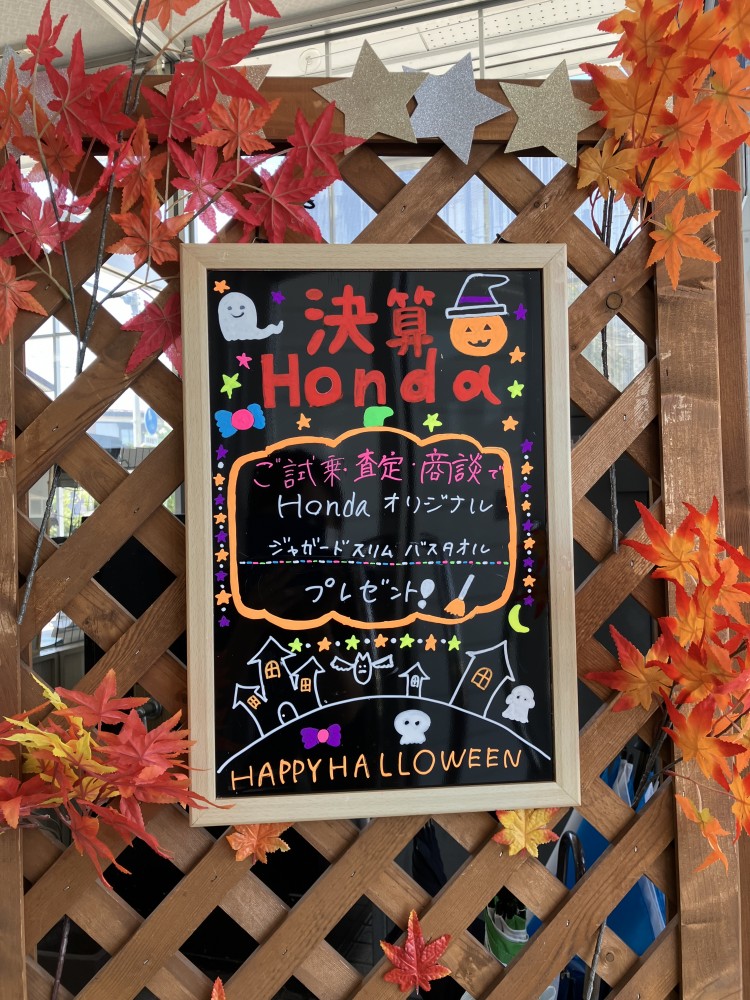 決算
Honda
ご試乗・査定・商談で
Honda オリジナル
ジャガードスリム バスタオル
プレゼント!
HAPPY HALLOWEEN